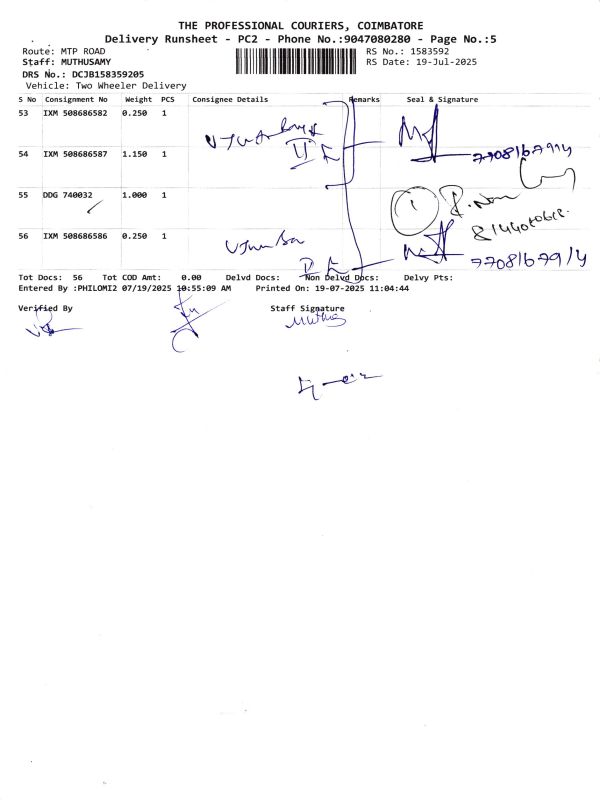 THE PROFESSIONAL COURIERS, COIMBATORE
Delivery Runsheet - PC2 - Phone No.:9047080280 - Page No.:5
Route: MTP ROAD RS No.: 1583592
Staff: MUTHUSAMY RS Date: 19-Jul-2025
DRS No.: DCJB158359205
Vehicle: Two Wheeler Delivery
S No Consignment No Weight PCS Consignee Details Remarks Seal & Signature
53 IXM 508686582 0.250 1
54 IXM 508686587 1.150 1
7708167914
55 DDG 740032 1.000 1
1
56 IXM 508686586 0.250 1
7708167914
Tot Docs: 56 Tot COD Amt: 0.00 Delvd Docs: Non Delvd Docs: Delvy Pts:
Entered By :PHILOMI2 07/19/2025 10:55:09 AM Printed On: 19-07-2025 11:04:44
Verified By Staff Signature